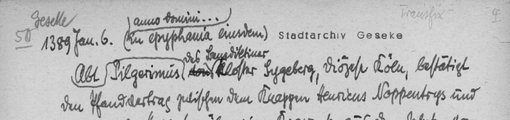 Geseke anno domini... Transfix
50 1389 Jan. 6. (in epyphania eiusdem) Stadtarchiv Geseke
Abt Pilgerimus des Benediktiner Kloster Sygeberg, Diözese Köln, bestätigt
den Pfandvertrag zwischen dem Knappen Henricus Noppentrys und